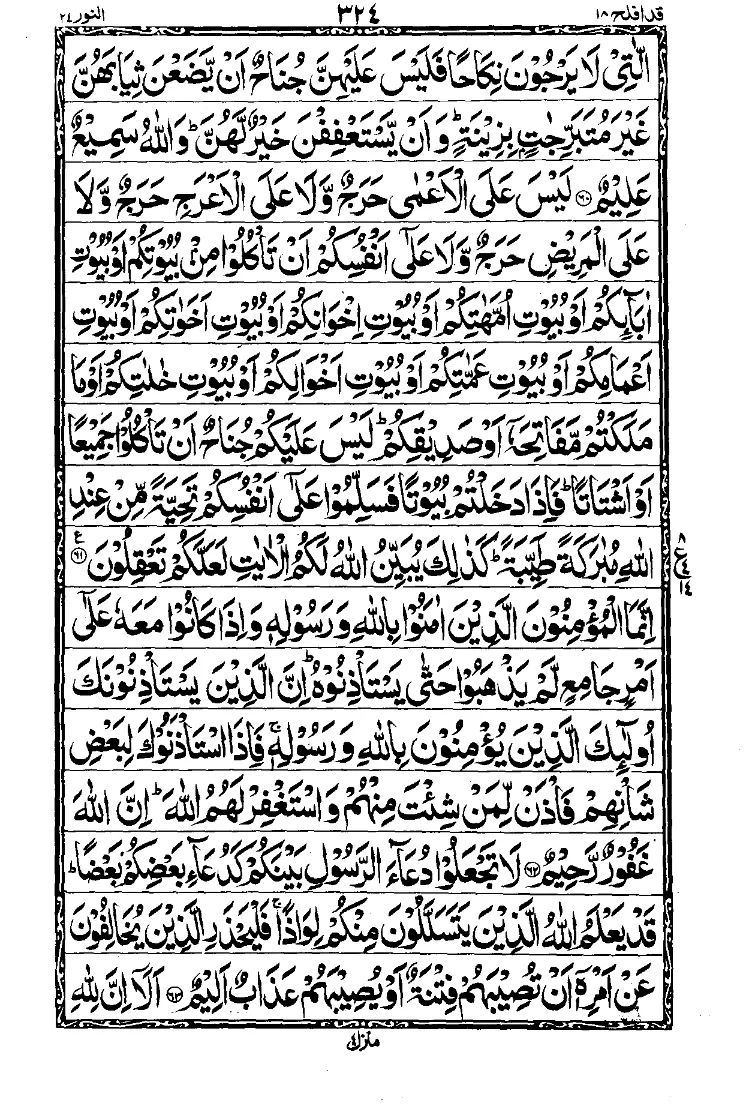 قد افلح ۱۸ ۳۲٤ النور ۲٤
الّٰتِیْ لَا یَرْجُوْنَ نِكَاحًا فَلَیْسَ عَلَیْهِنَّ جُنَاحٌ اَنْ یَّضَعْنَ ثِیَابَهُنَّ
غَیْرَ مُتَبَرِّجٰتٍۭ بِزِیْنَةٍ ؕ وَ اَنْ یَّسْتَعْفِفْنَ خَیْرٌ لَّهُنَّ ؕ وَ اللّٰهُ سَمِیْعٌ
عَلِیْمٌ ﴿۶۰﴾ لَیْسَ عَلَی الْاَعْمٰی حَرَجٌ وَّ لَا عَلَی الْاَعْرَجِ حَرَجٌ وَّ لَا
عَلَی الْمَرِیْضِ حَرَجٌ وَّ لَا عَلٰۤی اَنْفُسِكُمْ اَنْ تَاْكُلُوْا مِنْۢ بُیُوْتِكُمْ اَوْ بُیُوْتِ
اٰبَآىِٕكُمْ اَوْ بُیُوْتِ اُمَّهٰتِكُمْ اَوْ بُیُوْتِ اِخْوَانِكُمْ اَوْ بُیُوْتِ اَخَوٰتِكُمْ اَوْ بُیُوْتِ
اَعْمَامِكُمْ اَوْ بُیُوْتِ عَمّٰتِكُمْ اَوْ بُیُوْتِ اَخْوَالِكُمْ اَوْ بُیُوْتِ خٰلٰتِكُمْ اَوْ مَا
مَلَكْتُمْ مَّفَاتِحَهٗۤ اَوْ صَدِیْقِكُمْ ؕ لَیْسَ عَلَیْكُمْ جُنَاحٌ اَنْ تَاْكُلُوْا جَمِیْعًا
اَوْ اَشْتَاتًا ؕ فَاِذَا دَخَلْتُمْ بُیُوْتًا فَسَلِّمُوْا عَلٰۤی اَنْفُسِكُمْ تَحِیَّةً مِّنْ عِنْدِ
اللّٰهِ مُبٰرَكَةً طَیِّبَةً ؕ كَذٰلِكَ یُبَیِّنُ اللّٰهُ لَكُمُ الْاٰیٰتِ لَعَلَّكُمْ تَعْقِلُوْنَ ﴿۶۱﴾ ع
۸ ع ٤ ۱٤
اِنَّمَا الْمُؤْمِنُوْنَ الَّذِیْنَ اٰمَنُوْا بِاللّٰهِ وَ رَسُوْلِهٖ وَ اِذَا كَانُوْا مَعَهٗ عَلٰۤی
اَمْرٍ جَامِعٍ لَّمْ یَذْهَبُوْا حَتّٰی یَسْتَاْذِنُوْهُ ؕ اِنَّ الَّذِیْنَ یَسْتَاْذِنُوْنَكَ
اُولٰٓىِٕكَ الَّذِیْنَ یُؤْمِنُوْنَ بِاللّٰهِ وَ رَسُوْلِهٖ ۚ فَاِذَا اسْتَاْذَنُوْكَ لِبَعْضِ
شَاْنِهِمْ فَاْذَنْ لِّمَنْ شِئْتَ مِنْهُمْ وَ اسْتَغْفِرْ لَهُمُ اللّٰهَ ؕ اِنَّ اللّٰهَ
غَفُوْرٌ رَّحِیْمٌ ﴿۶۲﴾ لَا تَجْعَلُوْا دُعَآءَ الرَّسُوْلِ بَیْنَكُمْ كَدُعَآءِ بَعْضِكُمْ بَعْضًا ؕ
قَدْ یَعْلَمُ اللّٰهُ الَّذِیْنَ یَتَسَلَّلُوْنَ مِنْكُمْ لِوَاذًا ۚ فَلْیَحْذَرِ الَّذِیْنَ یُخَالِفُوْنَ
عَنْ اَمْرِهٖۤ اَنْ تُصِیْبَهُمْ فِتْنَةٌ اَوْ یُصِیْبَهُمْ عَذَابٌ اَلِیْمٌ ﴿۶۳﴾ اَلَاۤ اِنَّ لِلّٰهِ
منزل٤